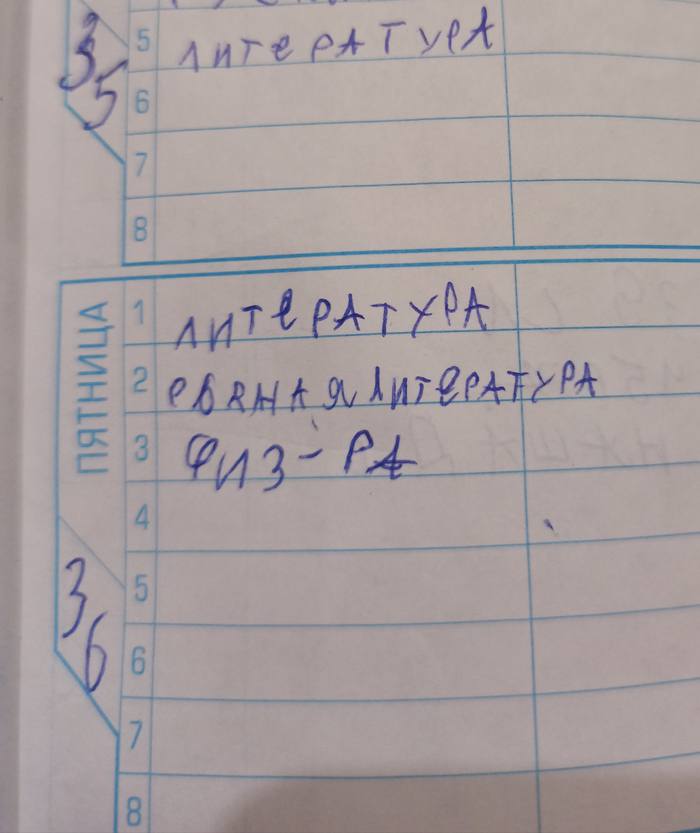 5 ЛИТЕРАТУРА
35
6
7
8
ПЯТНИЦА
1 ЛИТЕРАТУРА
2 РВЯНАЯ ЛИТЕРАТУРА
3 ФИЗ-РА
4
5
36
6
7
8